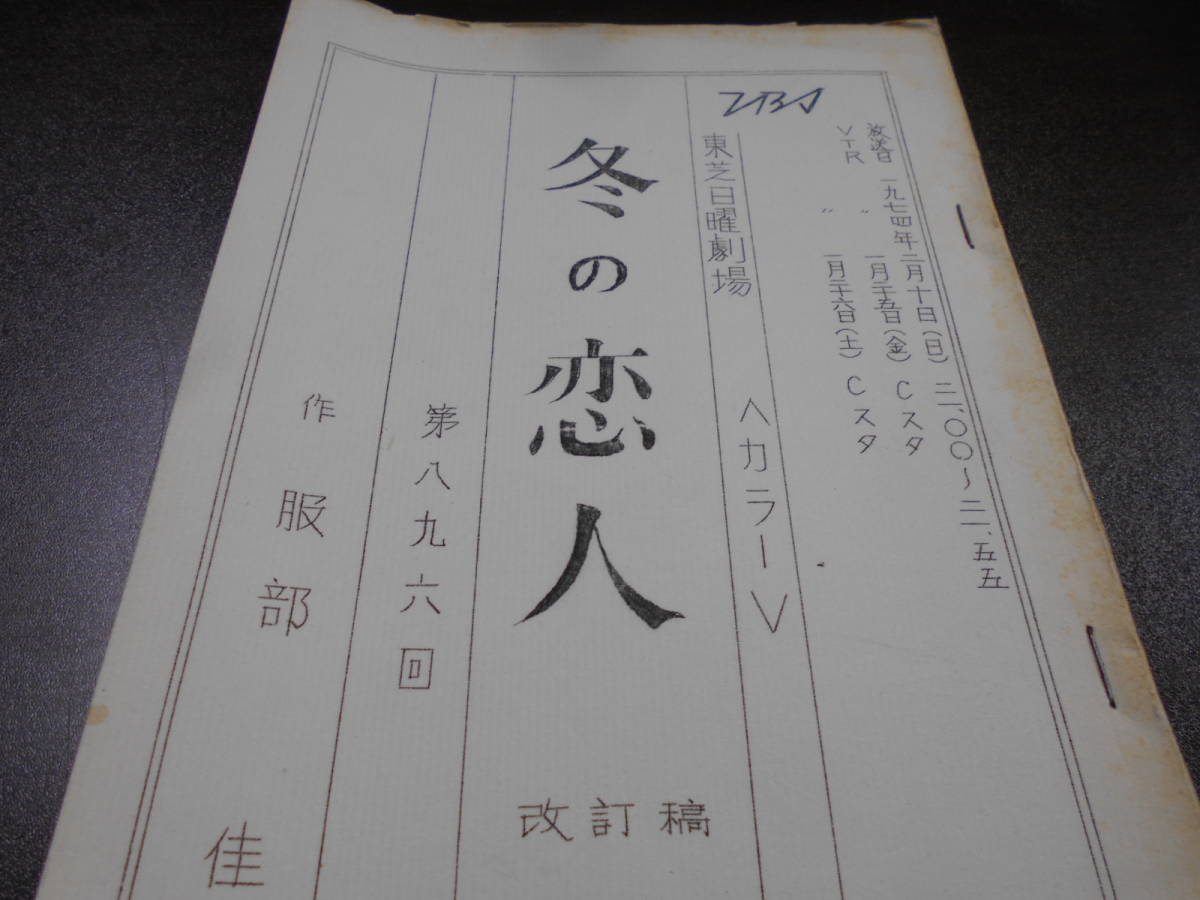 放送日 一九七四年二月十日(日) 二一、〇〇～二一、五五
VTR 〃 一月二十五日(金) Cスタ
〃 一月二十六日(土) Cスタ
TBS
東芝日曜劇場 〈カラー〉
冬の恋人 改訂稿
第八九六回
作 服部 佳